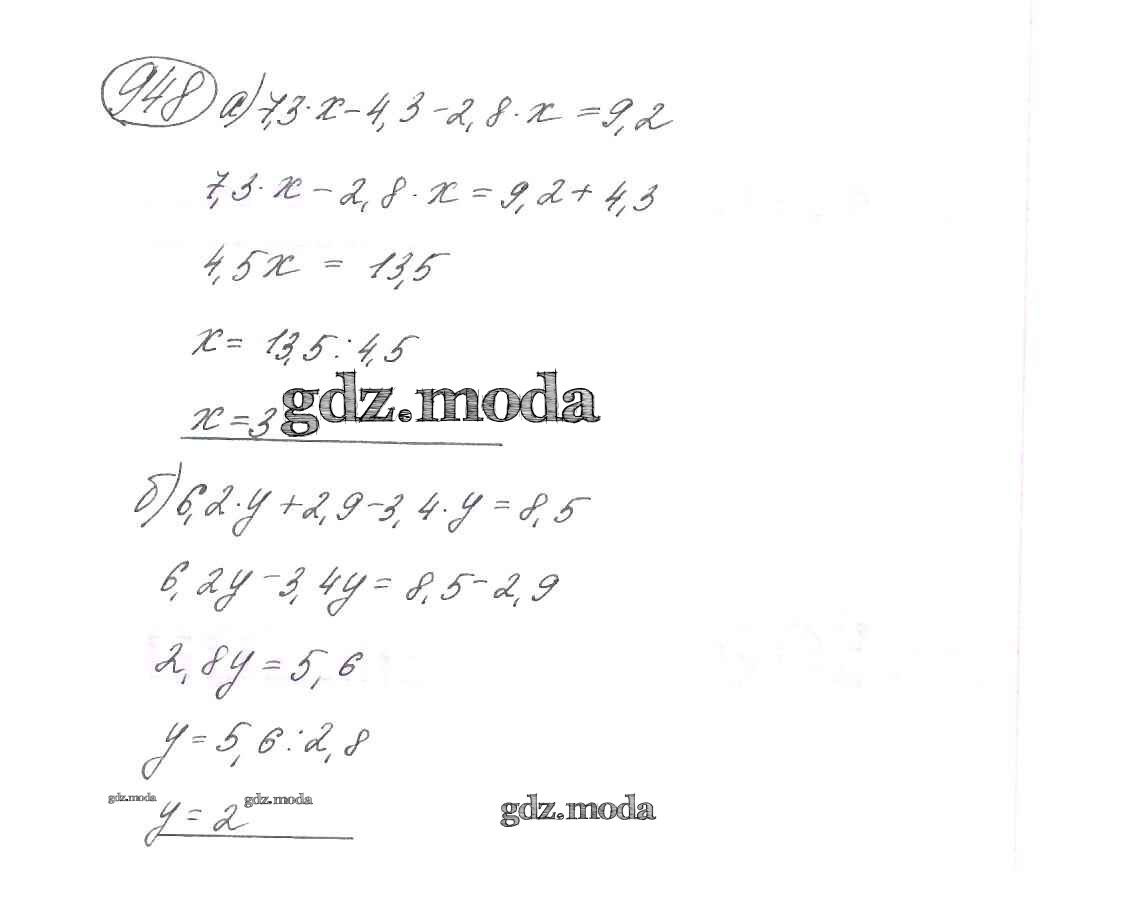 948 а) 7,3·x-4,3-2,8·x=9,2
7,3·x-2,8·x=9,2+4,3
4,5x = 13,5
x= 13,5:4,5
gdz.moda
x=3
б) 6,2·y+2,9-3,4·y=8,5
6,2y-3,4y=8,5-2,9
2,8y=5,6
y=5,6:2,8
gdz.moda
y=2
gdz.moda
gdz.moda